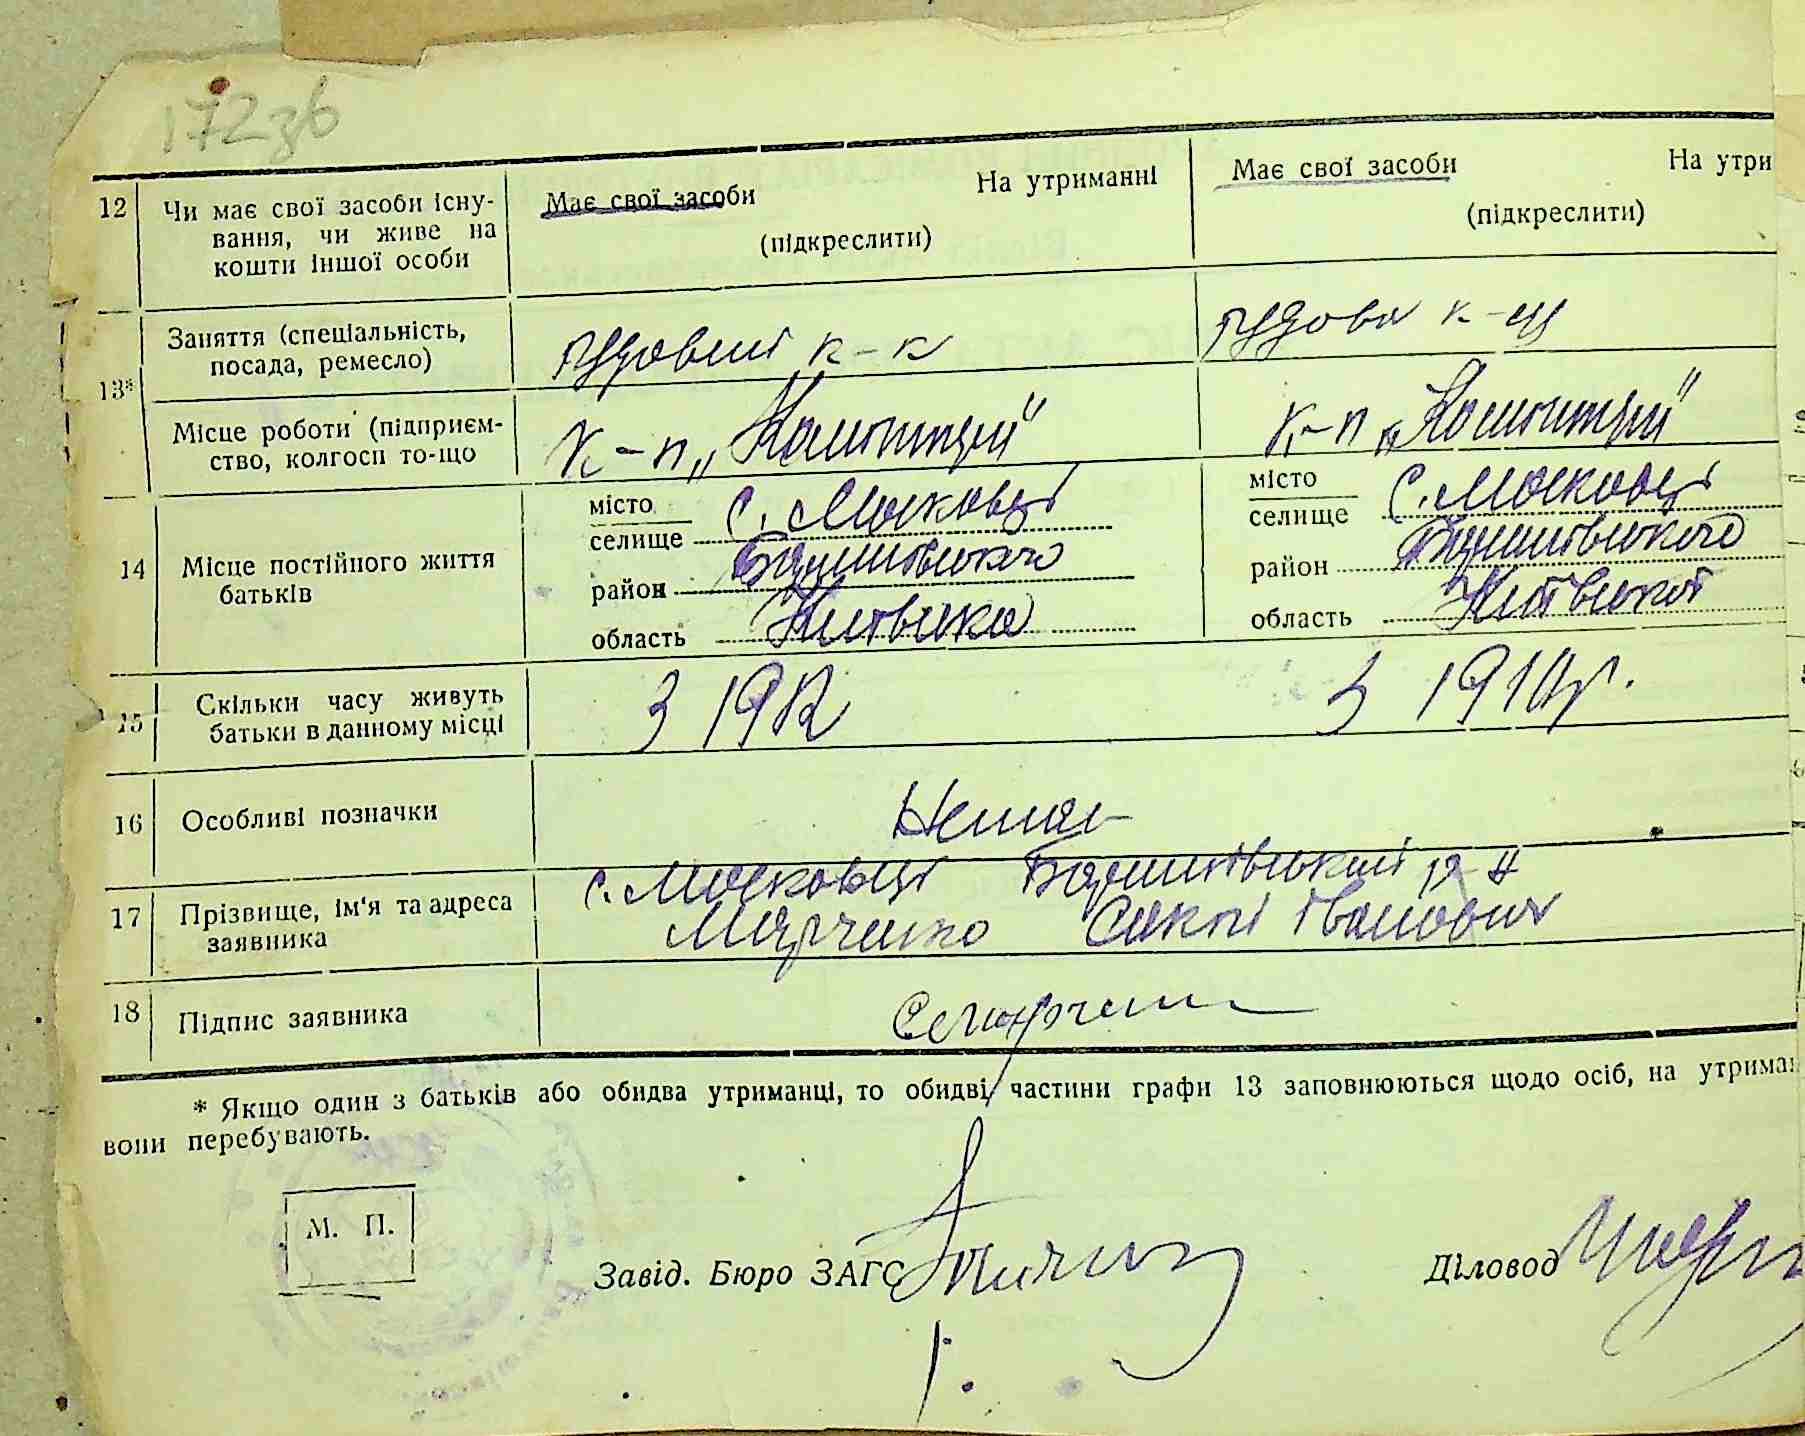 172зв
12 Чи має свої засоби існу-
вання, чи живе на
кошти іншої особи
Має свої засоби На утриманні
(підкреслити)
Має свої засоби На утри
(підкреслити)
13* Заняття (спеціальність,
посада, ремесло)
рядовий к-к
рядова к-ця
Місце роботи (підприєм-
ство, колгосп то-що
к-п „Комінтерн"
к-п „Комінтерн"
14 Місце постійного життя
батьків
місто
селище с. Московці
район Баришівського
область Київська
місто
селище с. Московці
район Баришівського
область Київської
15 Скільки часу живуть
батьки в данному місці
З 1912
З 1910 р.
16 Особливі позначки
Немає
17 Прізвище, ім'я та адреса
заявника
с. Московці Баришівський р-н
Марченко Іванович
18 Підпис заявника
* Якщо один з батьків або обидва утриманці, то обидві частини графи 13 заповнюються щодо осіб, на утриман
вони перебувають.
М. П.
Завід. Бюро ЗАГС
Діловод